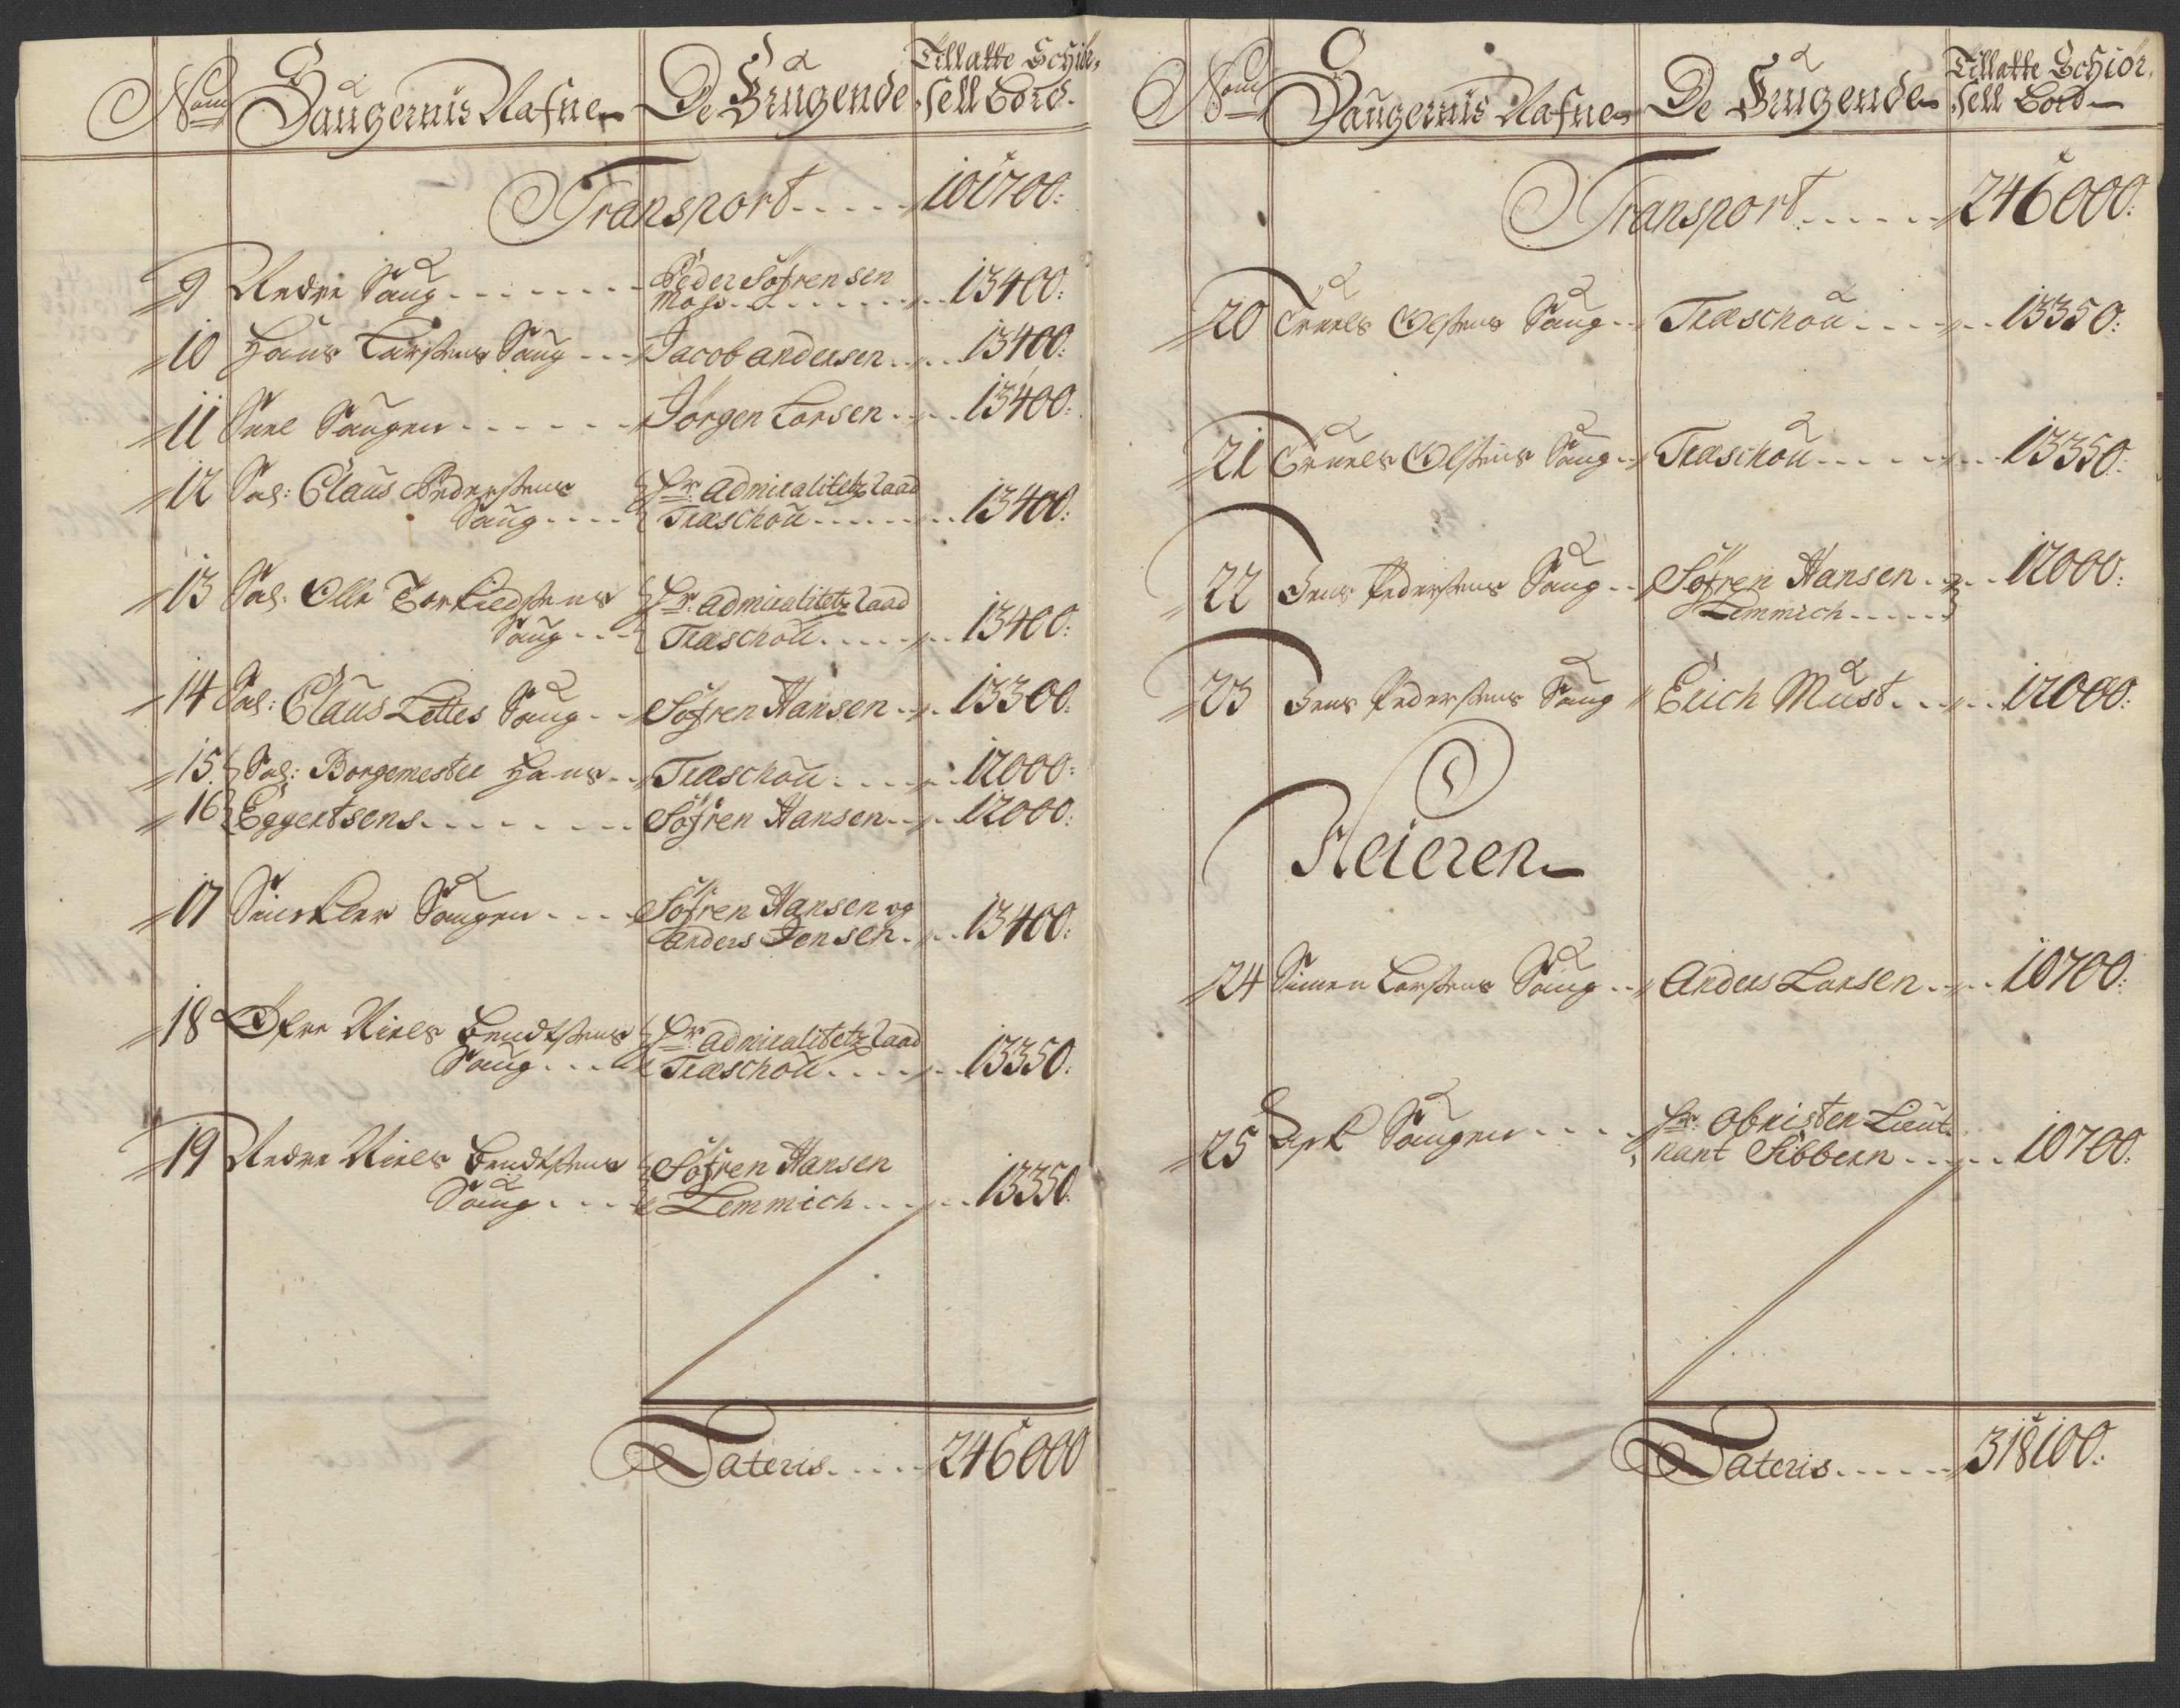 Nom
Saugernis Nafne
De Brugende
Tillatte Schiør,
sell Bord
Transport 101700:
9 Nedre Saug Peder Söfrensen
Moss 13400:
10 Hans Larsens Saug Jacob Andersen 13400:
11 Saugen Jörgen Larsen 13400:
12 Sal: Claus Pedersens Hr. Admiralitetz Raad
Saug Træschou 13400:
13 Sal: Olle Torkieldsens Hr. Admiralitetz Raad
Saug Træschou 13400:
14 Sal: Claus Lettes Saug Söfren Hansen 13300:
15 Sal: Borgemester Hans Træschou 12000:
16 Eggertsens Söfren Hansen 12000:
17 Saugen Söfren Hansen og
Anders Jensen 13400:
18 Øfre Niels Bendtsens Hr. Admiralitetz Raad
Saug Træschou 13350:
19 Nedre Niels Bendtsens Söfren Hansen
Saug Lemmich 13350:
Lateris 246000
Nom
Saugernis Nafne
De Brugende
Tillatte Schiör,
sell Bord
Transport 246000:
20 Truels Olsens Saug Træschou 13350:
21 Truels Olsens Saug Træschou 13350:
22 Jens Pedersens Saug Söfren Hansen 12000:
Lemmich
23 Jens Pedersens Saug Erich Must 12000:
Neieren
24 Simen Larsens Saug Anders Larsen 10700:
25 Saugen Hr. Obrister Lieut
nant Sibbern 10700:
Lateris 318100: